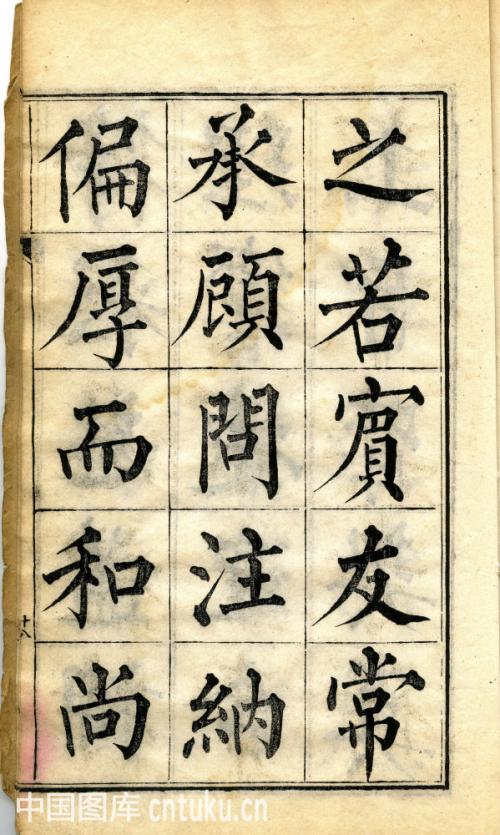 之若賓友常
承顧問注納
偏厚而和尚
十八
中国图库 cntuku.cn